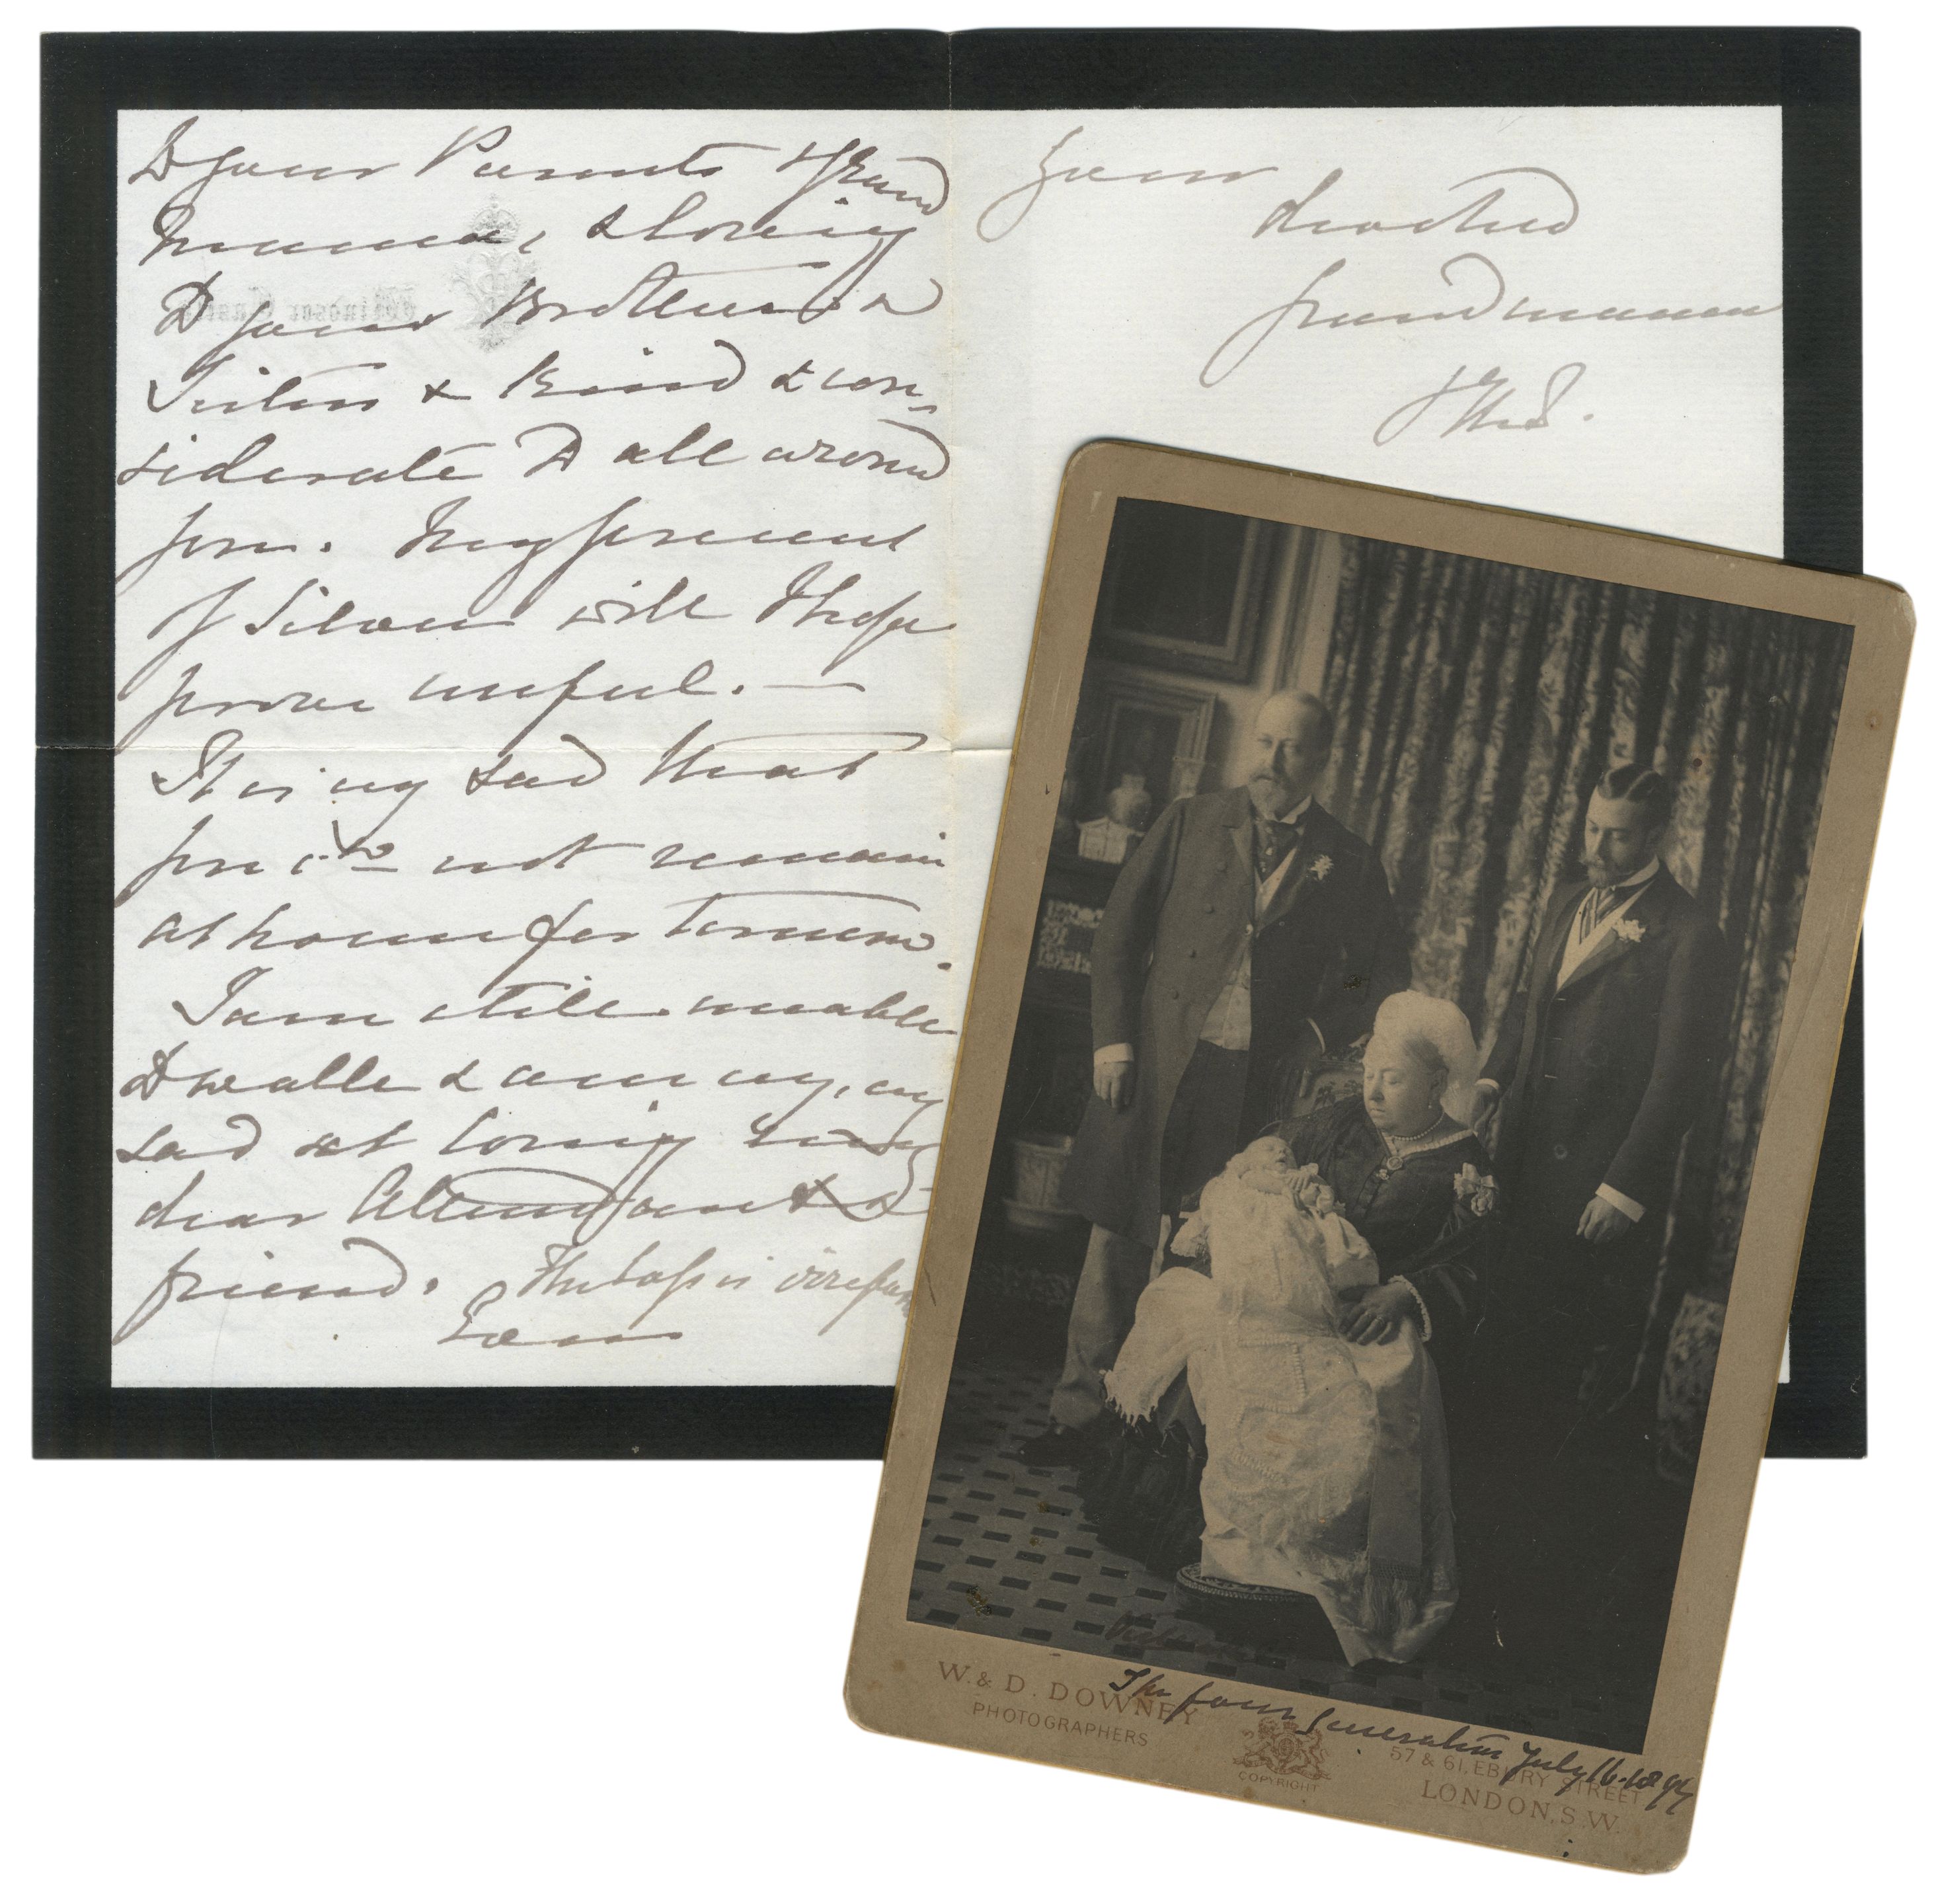 to your Parents & Grand
mamma, & loving
to your Brother &
Sisters & kind & con-
siderate to all around
you. My present
of Silver will I hope
prove useful. —
It is very sad that
you cld not remain
at home for tomorrow.
I am still unable
to walk & am very, very
sad at losing my
dear Attendant &
friend. The loss is
Ever
Your
devoted
grandmama
VRI.
Windsor Castle
W. & D. DOWNEY
PHOTOGRAPHERS
COPYRIGHT
57 & 61, EBURY STREET
LONDON, S.W.
The four generations July 16. 1894